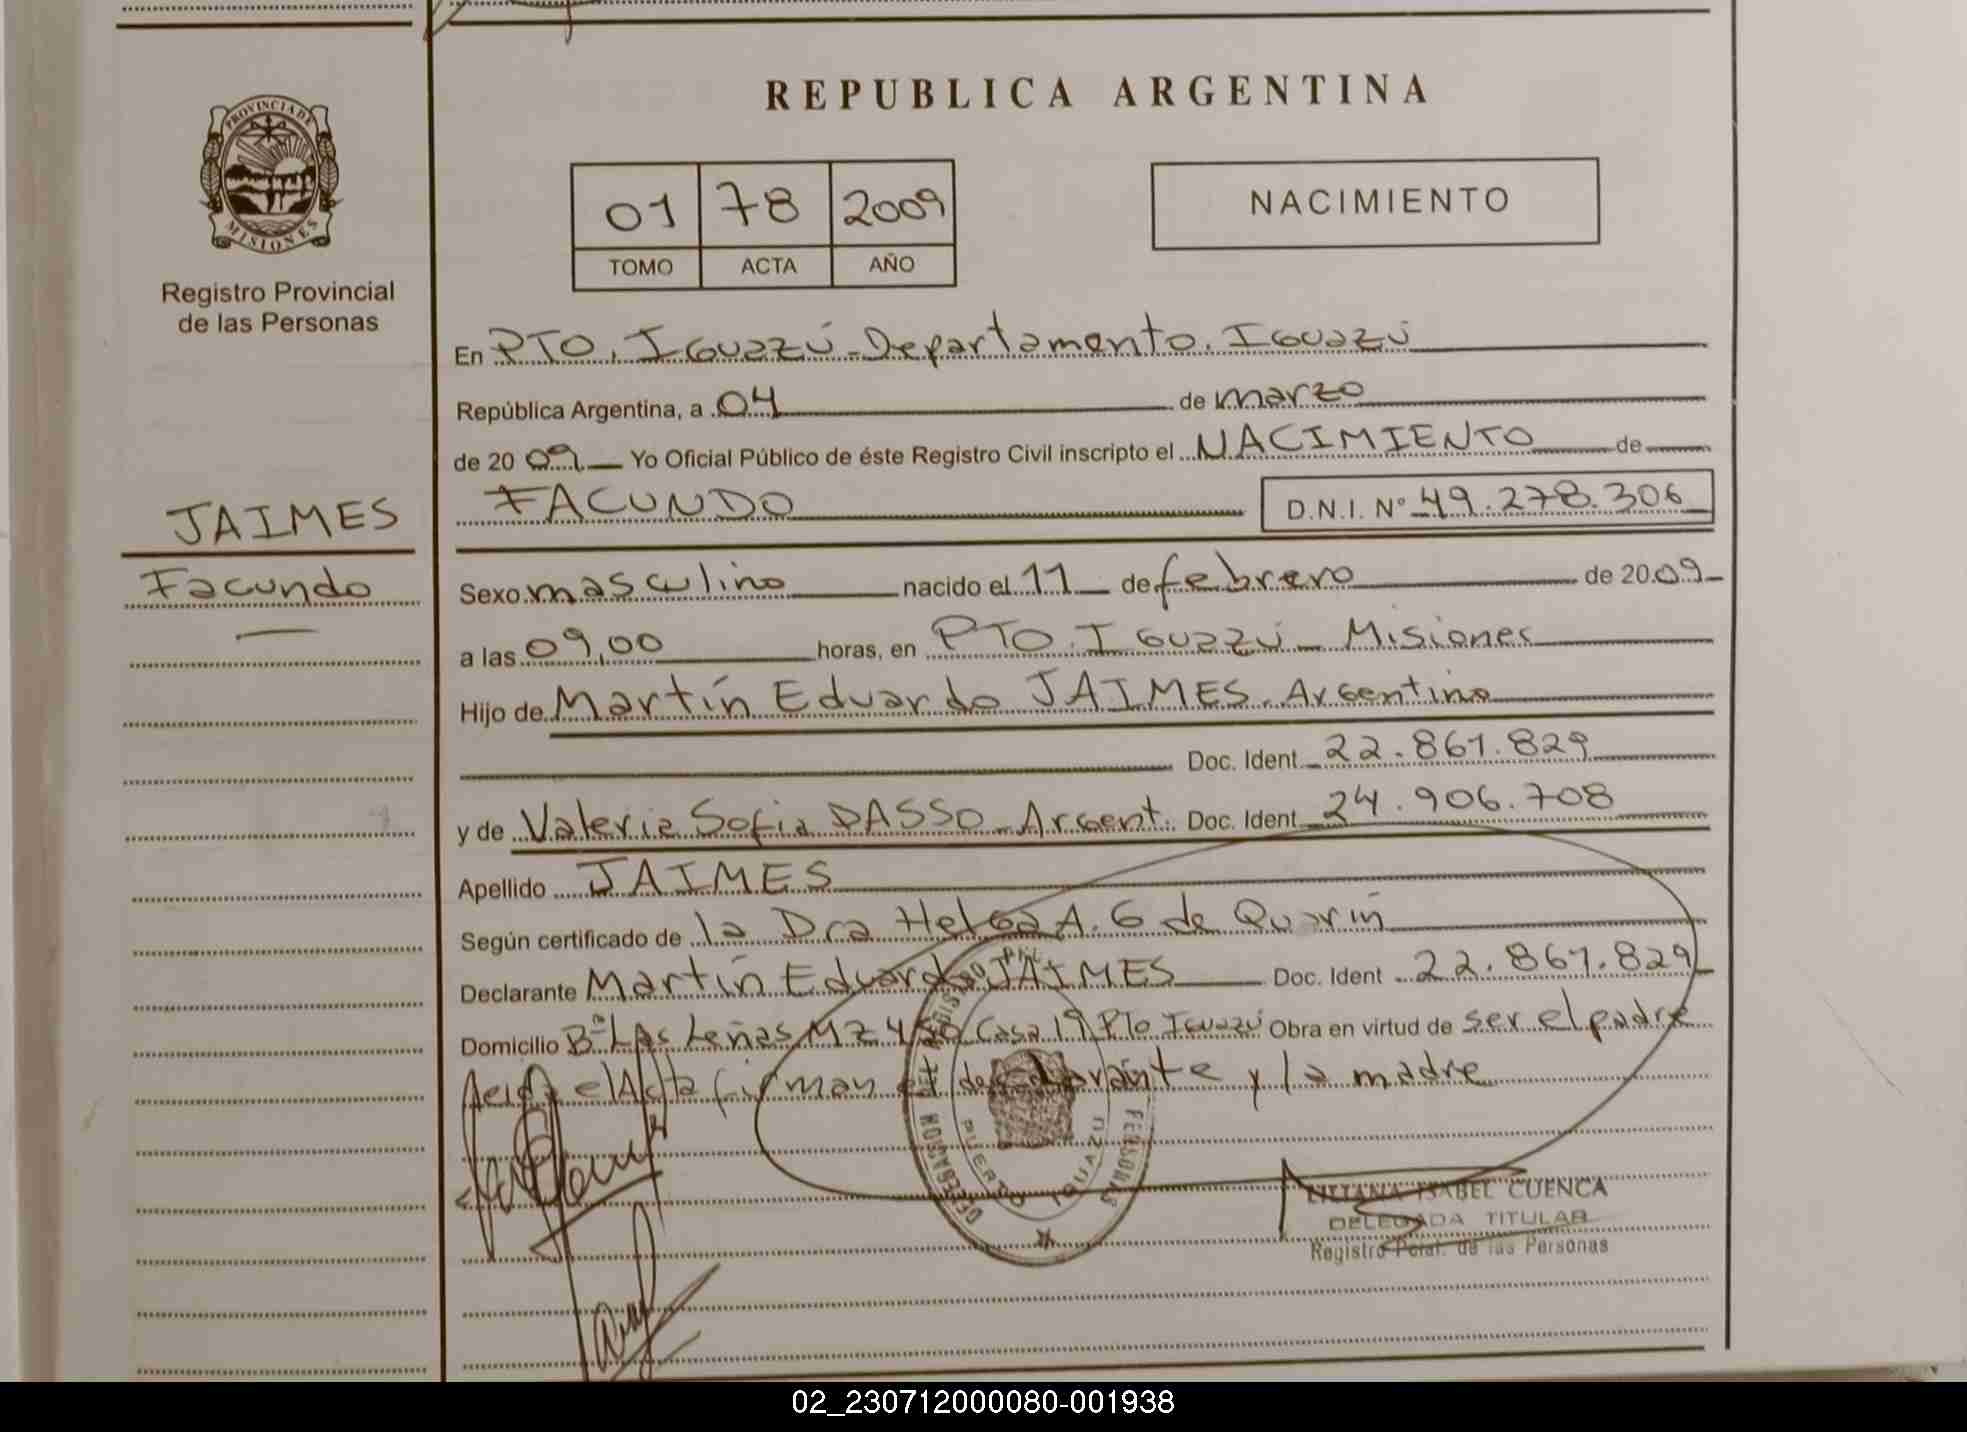 REPUBLICA ARGENTINA
PROVINCIA DE
MISIONES
Registro Provincial
de las Personas
01 78 2009
TOMO ACTA AÑO
NACIMIENTO
En PTO. Iguazú - Departamento. Iguazú
República Argentina, a 04 de marzo
de 2009 Yo Oficial Público de éste Registro Civil inscripto el NACIMIENTO de
JAIMES
Facundo
FACUNDO D.N.I. Nº 49.278.306
Sexo masculino nacido el 11 de febrero de 2009
a las 09,00 horas, en PTO. Iguazú - Misiones
Hijo de Martín Eduardo JAIMES. Argentino
Doc. Ident. 22.861.829
y de Valeria Sofia DASSO - Argent. Doc. Ident. 24.906.708
Apellido JAIMES
Según certificado de la Dra Helga A. G de Quarin
Declarante Martín Eduardo JAIMES Doc. Ident 22.861.829
Domicilio Bº Las Leñas MZ Casa 19 Pto Iguazú Obra en virtud de ser el padre
Leida el Acta firman el declarante y la madre
DELEGACION DEL REGISTRO PERSONAS
PUERTO IGUAZU
LILIANA ISABEL CUENCA
DELEGADA TITULAR
Registro Pcial. de las Personas
02_230712000080-001938